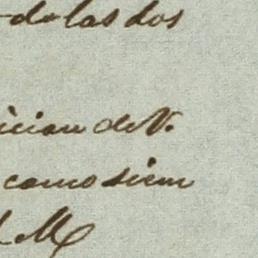 de las dos
icion de V.
como siem
M